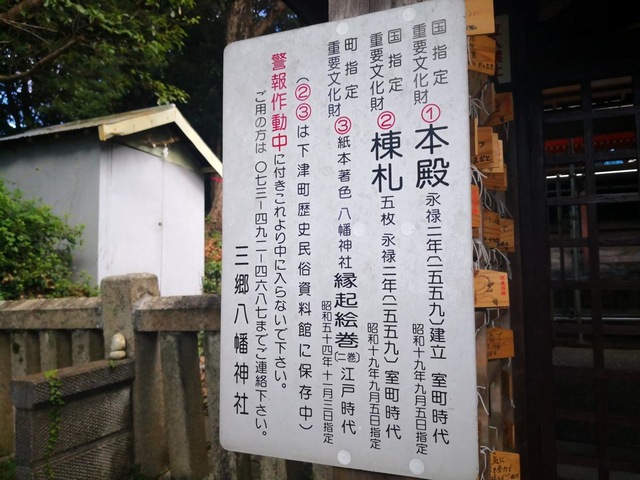 国指定
重要文化財
①本殿 永禄二年(一五五九)建立 室町時代
昭和十九年九月五日指定
国指定
重要文化財
②棟札 五枚 永禄二年(一五五九)室町時代
昭和十九年九月五日指定
町指定
重要文化財
③紙本著色 八幡神社 縁起絵巻(二巻)江戸時代
昭和五十四年十一月三日指定
(②③は下津町歴史民俗資料館に保存中)
警報作動中に付きこれより中に入らないで下さい。
ご用の方は 〇七三ー四九二ー四六八七までご連絡下さい。
三郷八幡神社